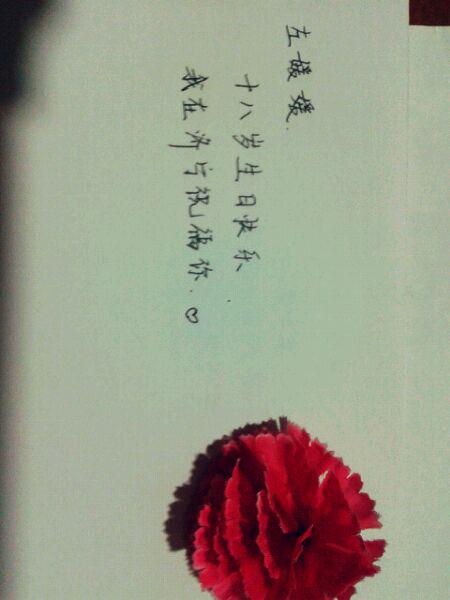 左媛媛.
十八岁生日快乐.
我在济宁祝福你.♡